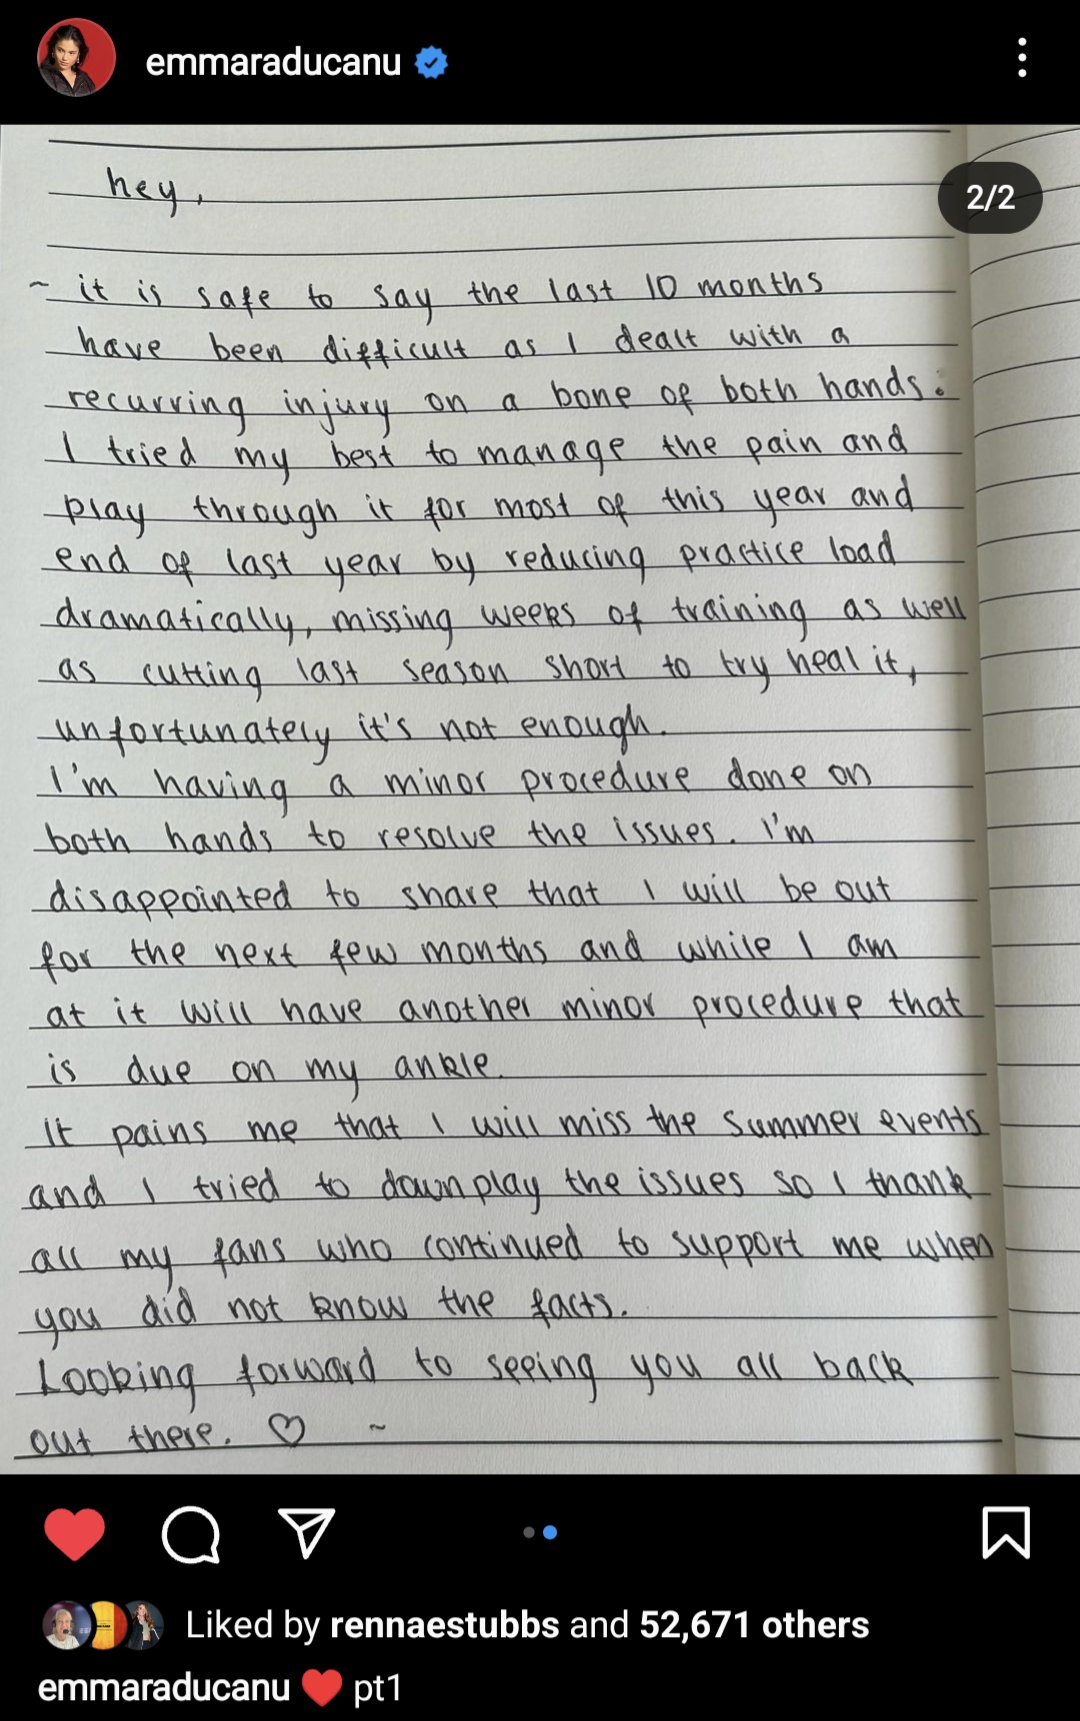 emmaraducanu
2/2
hey,
~ it is safe to say the last 10 months
have been difficult as I dealt with a
recurring injury on a bone of both hands.
I tried my best to manage the pain and
play through it for most of this year and
end of last year by reducing practice load
dramatically, missing weeks of training as well
as cutting last season short to try heal it,
unfortunately it's not enough.
I'm having a minor procedure done on
both hands to resolve the issues. I'm
disappointed to share that I will be out
for the next few months and while I am
at it will have another minor procedure that
is due on my ankle.
It pains me that I will miss the summer events
and I tried to downplay the issues so I thank
all my fans who continued to support me when
you did not know the facts.
Looking forward to seeing you all back
out there. ♡ ~
Liked by rennaestubbs and 52,671 others
emmaraducanu ❤️ pt1